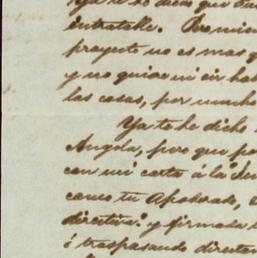 ya te he dicho que
intratable. Pero mien
proyecto no es mas q
y no quiere ni oir hab
las cosas, por mucho
Ya te he dicho
Angola, pero que po
con mi carta á la Ju
como tu apoderado,
directiva y firmada
ó traspasando directa